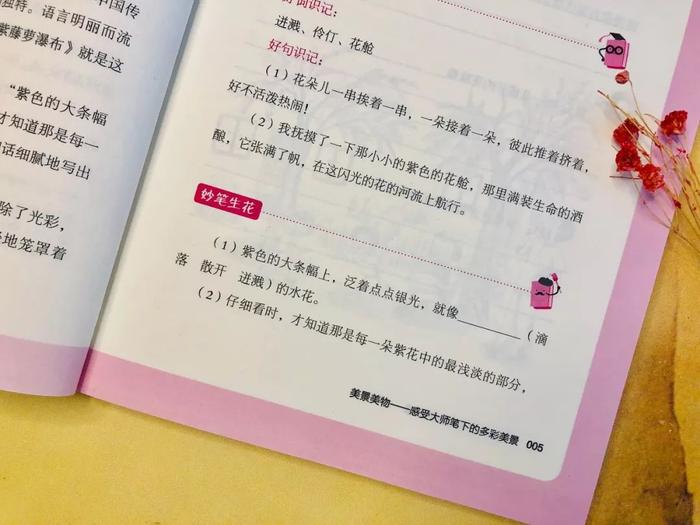 中国传
独特。语言明丽而流
紫藤萝瀑布》就是这
“紫色的大条幅
才知道那是每一
话细腻地写出
除了光彩，
地笼罩着
好词识记：
迸溅、伶仃、花舱
好句识记：
（1）花朵儿一串挨着一串，一朵接着一朵，彼此推着挤着，
好不活泼热闹！
（2）我抚摸了一下那小小的紫色的花舱，那里满装生命的酒
酿，它张满了帆，在这闪光的花的河流上航行。
妙笔生花
（1）紫色的大条幅上，泛着点点银光，就像________（滴
落 散开 迸溅）的水花。
（2）仔细看时，才知道那是每一朵紫花中的最浅淡的部分，
美景美物——感受大师笔下的多彩美景 005